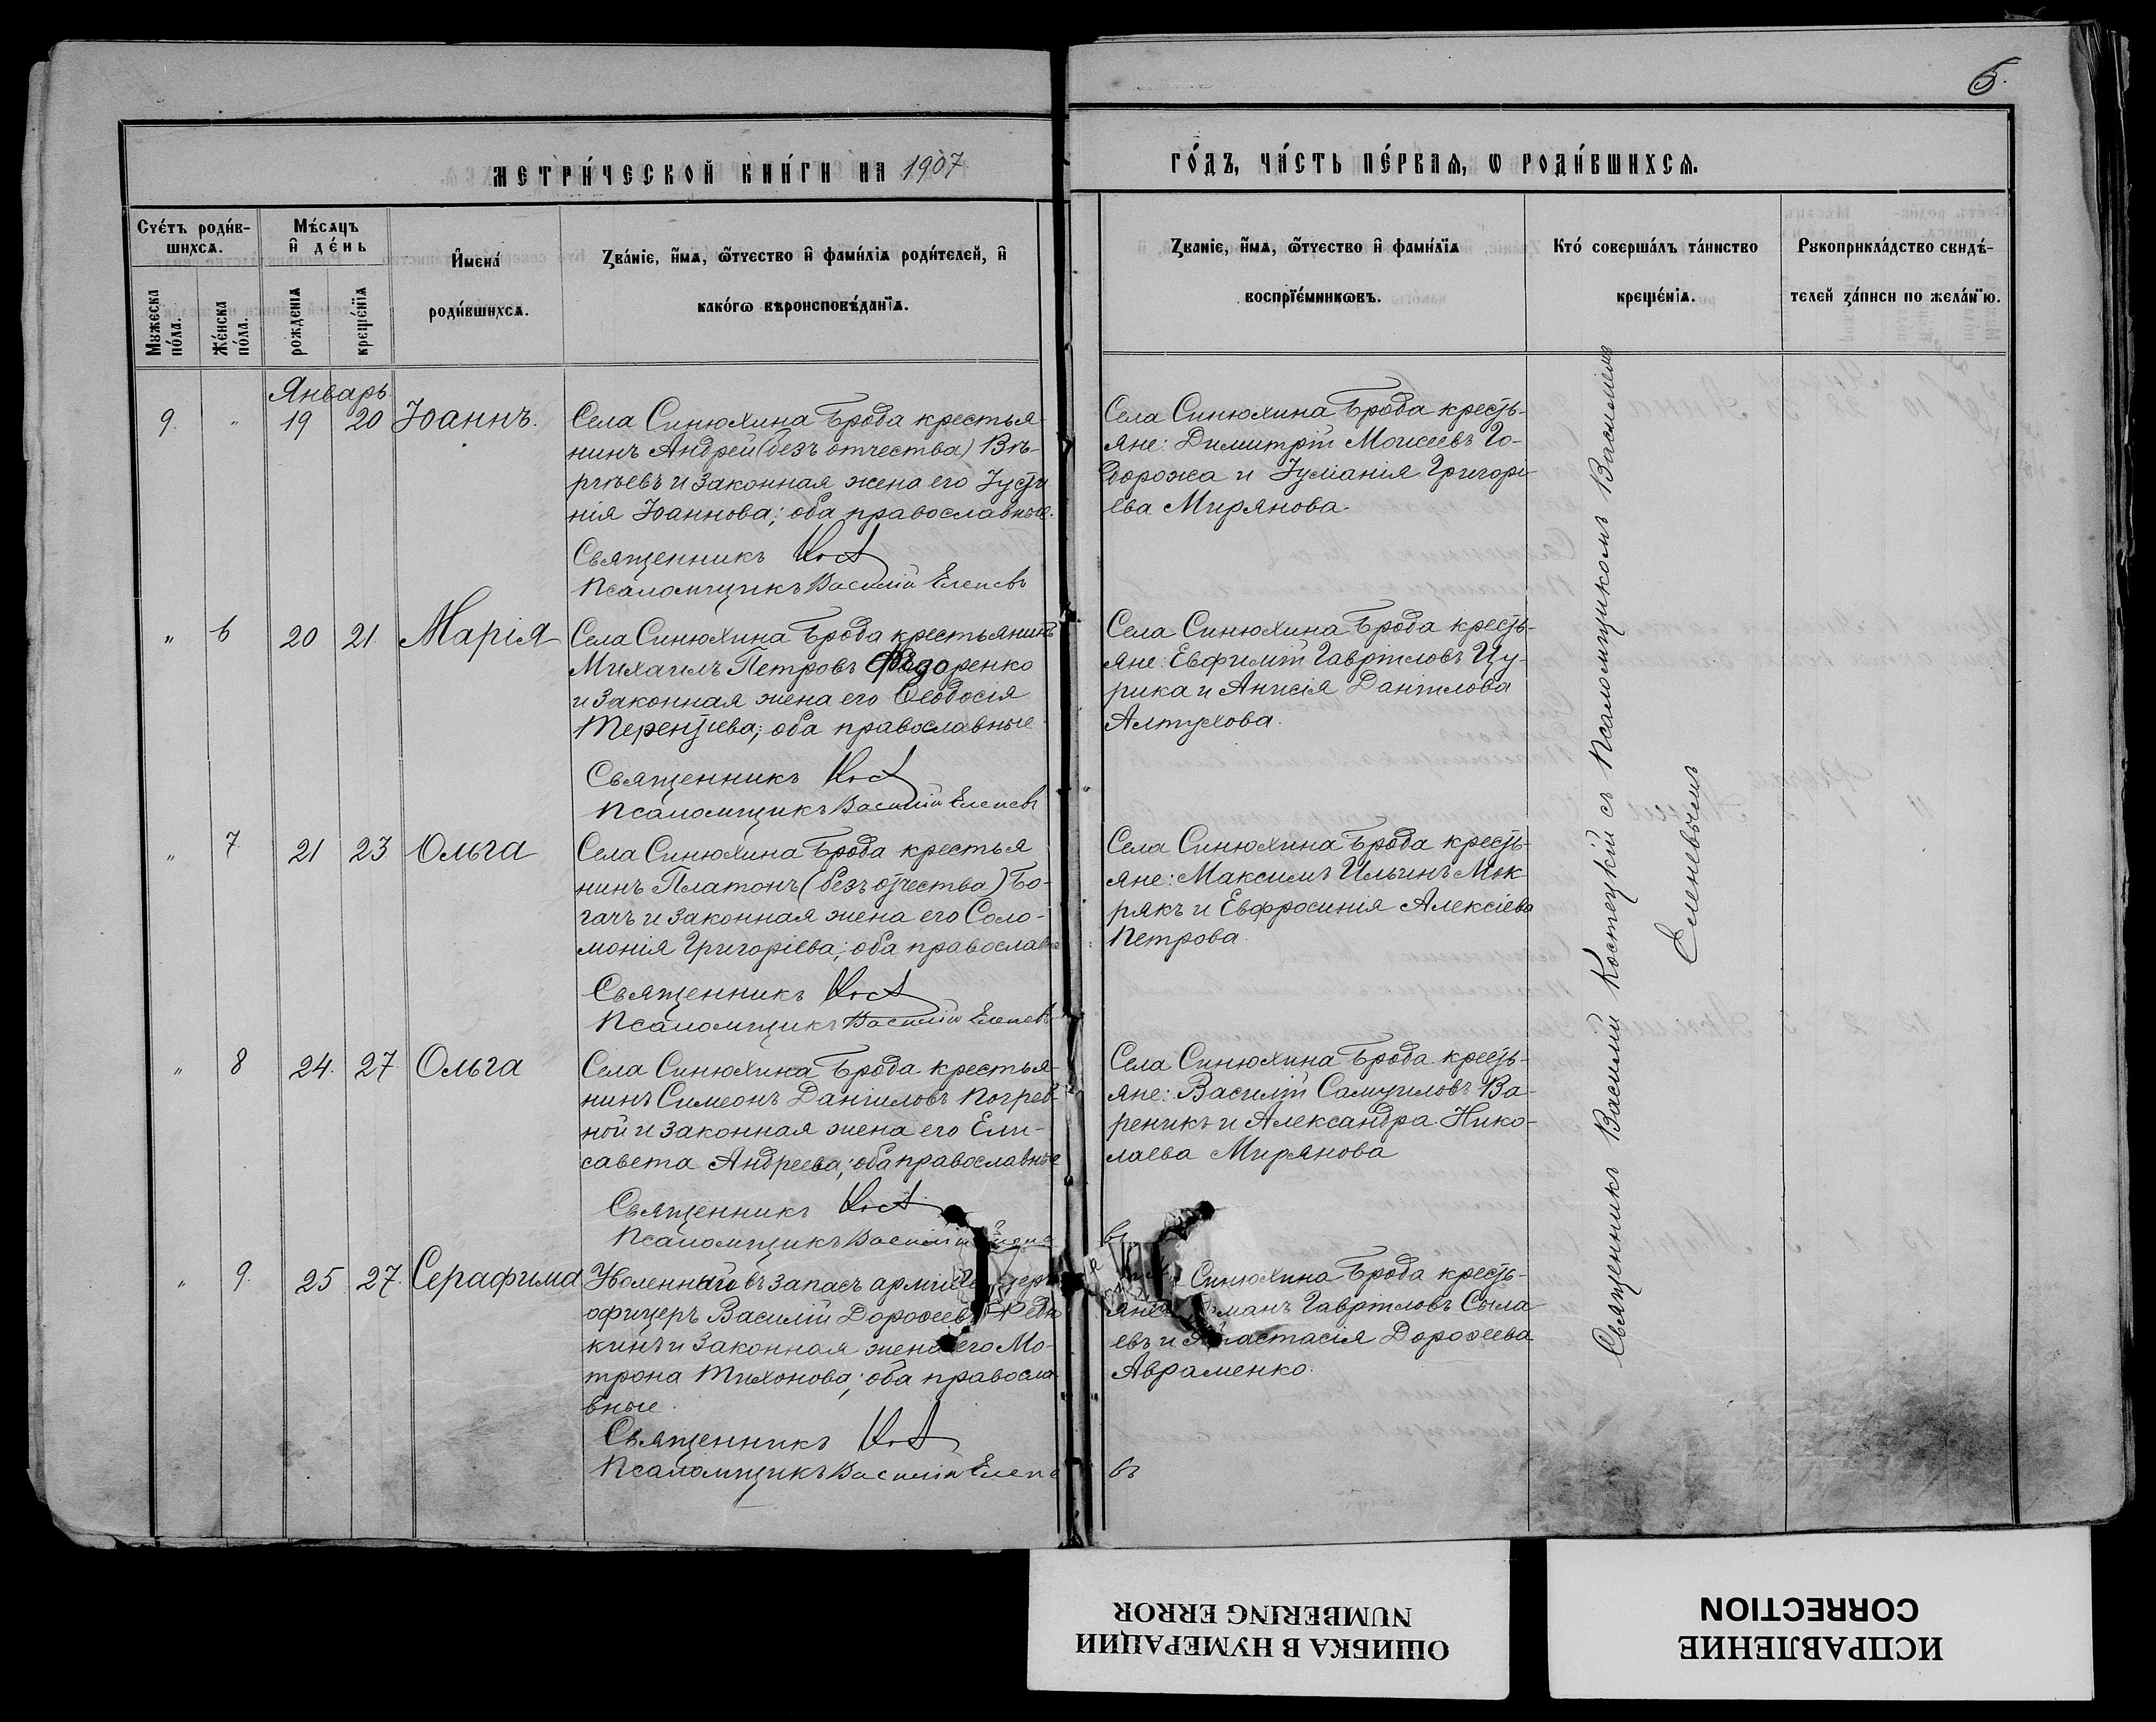 5.
МЕТРИ́ЧЕСКОЙ КНИ́ГИ НА 1907
ГО́ДЪ, ЧА́СТЬ ПЕ́РВАѦ, Ѡ РОДИ́ВШИХСѦ.
Сче́тъ роди́в-
шихсѧ.
Мѣ́сѧцъ
и҆ де́нь
Мꙋжеска по́ла.
Же́нска по́ла.
рожденїѧ
креще́нїѧ
И҆мена́
роди́вшихсѧ.
Зва́нїе, и҆́мѧ, ѻ҆́тчество и҆ фами́лїѧ роди́телей, и҆
како́гѡ вѣроисповѣ́данїѧ.
Званїе, и҆́мѧ, ѻ҆́тчество и҆ фами́лїѧ
воспрїе́мникѡвъ.
Кто́ соверша́лъ та́инство
креще́нїѧ.
Рꙋкоприкла́дство свидѣ́-
телей за́писи по жела́нїю.
Январь
9. " 19 20 Іоаннъ.
Села Синюхина Брода крестья-
нинъ Андрей (безъ отчества)
и законная жена его Іусти
нія Іоаннова; оба православные.
Священникъ
Псаломщикъ Василій Еленевъ
Села Синюхина Брода кресть-
яне: Димитрій Моисеевъ Го-
ворожа и Іуліанія Григорі-
ева Мирянова.
" 6 20 21. Марія
Села Синюхина Брода крестьянинъ
Михаилъ Петровъ Ѳедоренко
и законная жена его Ѳеодосія
Терентіева; оба православные
Священникъ
Псаломщикъ Василій Еленевъ
Села Синюхина Брода кресть-
яне: Евфимій Гавріиловъ Цу-
рика и Анисія Даніилова
Алтухова.
" 7. 21 23 Ольга
Села Синюхина Брода крестья
нинъ Платонъ (безъ отчества) Бо-
гачъ и законная жена его Соло-
монія Григоріева; оба православ
Священникъ
Псаломщикъ Василій Еленевъ
Села Синюхина Брода кресть-
яне: Максимъ Ильинъ Мок-
рякъ и Евфросинія Алексіева
Петрова.
" 8 24. 27. Ольга
Села Синюхина Брода крестья-
нинъ Симеонъ Даніиловъ Погреб-
ной и законная жена его Ели-
савета Андреева; оба православные
Священникъ
Псаломщикъ Василій
въ
Села Синюхина Брода кресть-
яне: Василій Самуиловъ Ва-
реникъ и Александра Нико-
лаева Мирянова
" 9. 25 27. Серафима
Уволенный въ запасъ арміи
офицеръ Василій Дороѳеевъ
кинъ и законная жена его Мо-
трона Тихонова; оба правосла
вные.
Священникъ
Псаломщикъ Василій Елене
въ
Синюхина Брода кресть-
яне Гавріиловъ Сыла-
евъ и Анастасія Дороѳеева
Авраменко.
Священникъ Василій Костецкій съ Псаломщикомъ Василіемъ
Еленевымъ
ОШИБКА В НУМЕРАЦИИ
NUMBERING ERROR
ИСПРАВЛЕНИЕ
CORRECTION